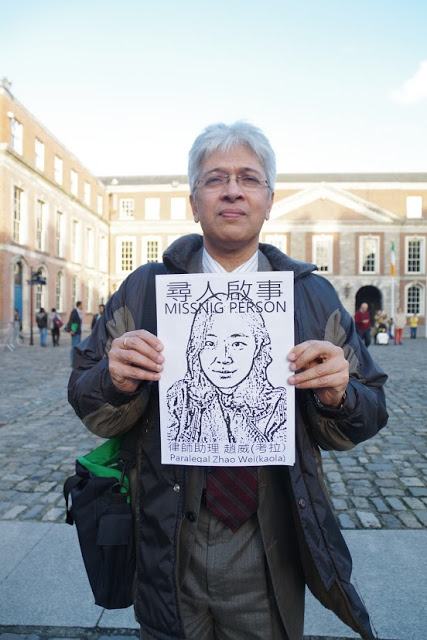 尋人啟事
MISSNIG PERSON
律師助理 趙威(考拉)
Paralegal Zhao Wei(kaola)